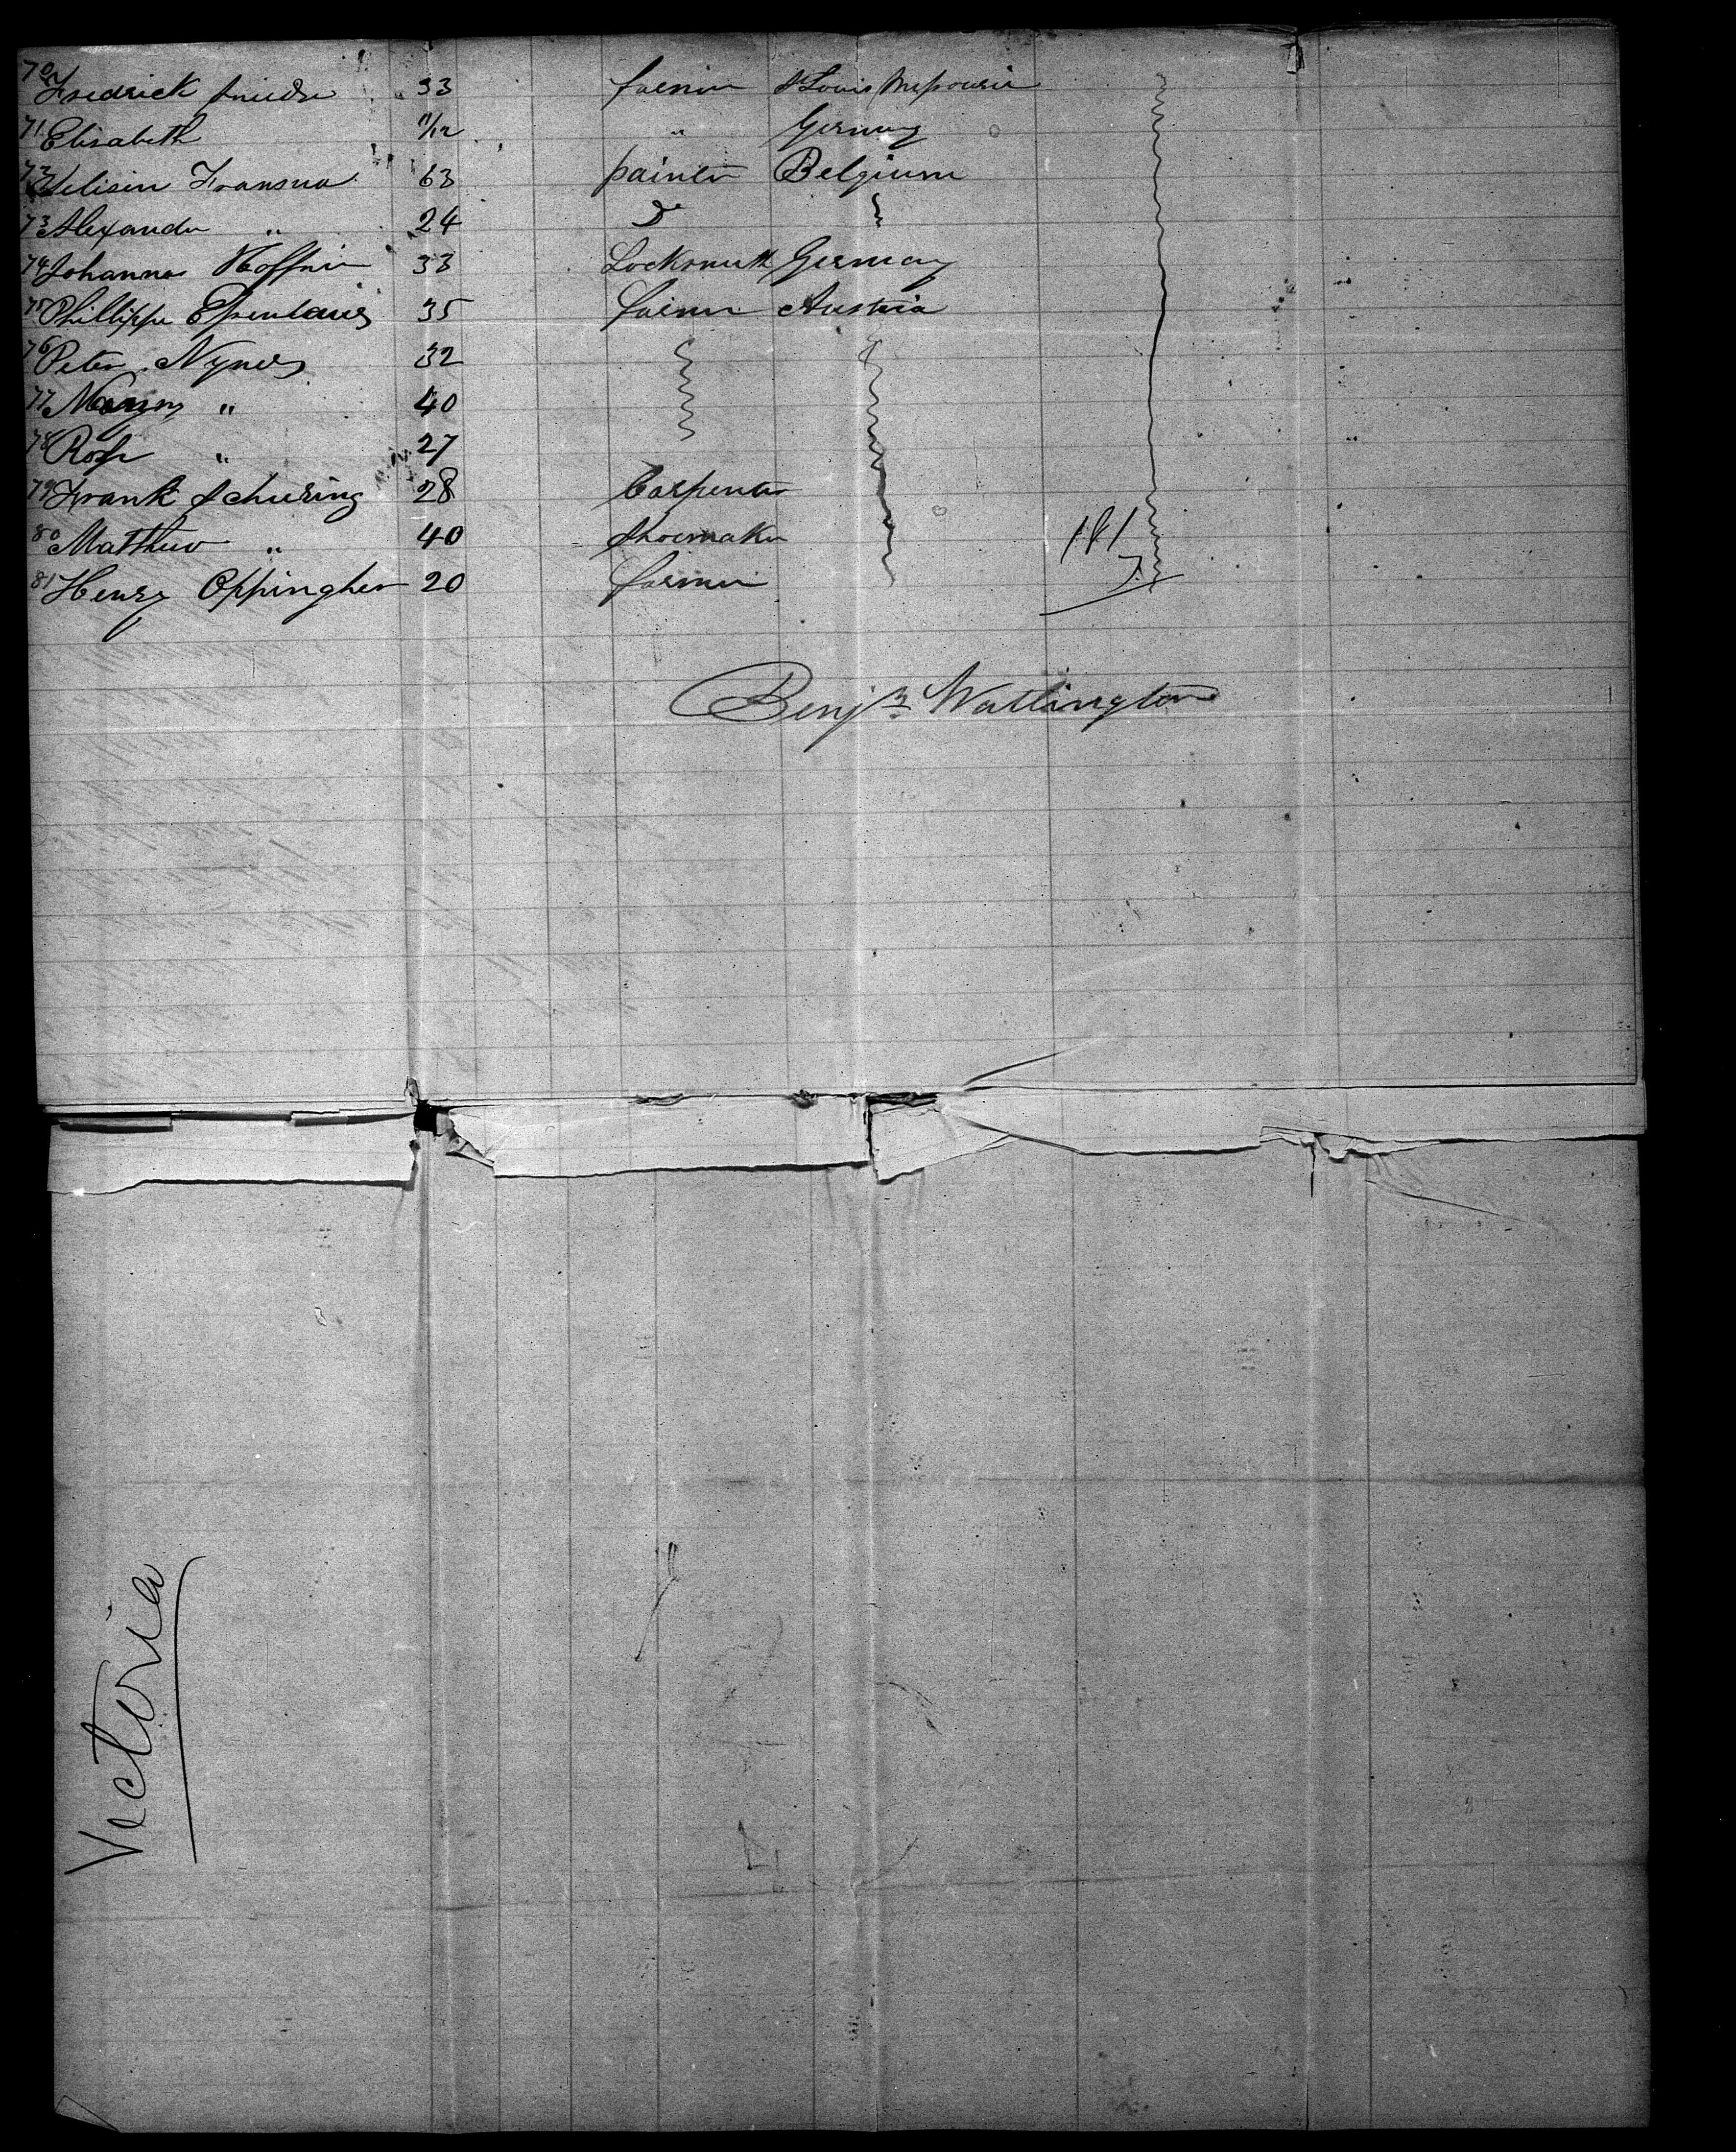 70 Fredrick 33 farmer St Louis Missouri
71 Elisabeth 11/12 " Germany
72 Fransua 63 painter Belgium
73 Alexander " 24 Do
74 Johannes Hoffner 33 Locksmith Germany
75 Phillippe 35 farmer Austria
76 Peter Nynes 32
77 " 40
78 Rosa " 27
79 Frank Schuring 28 Carpenter
80 Matthew " 40 Shoemaker 181
81 Henry Oppingher 20 farmer
Benjn Watlington
Victoria